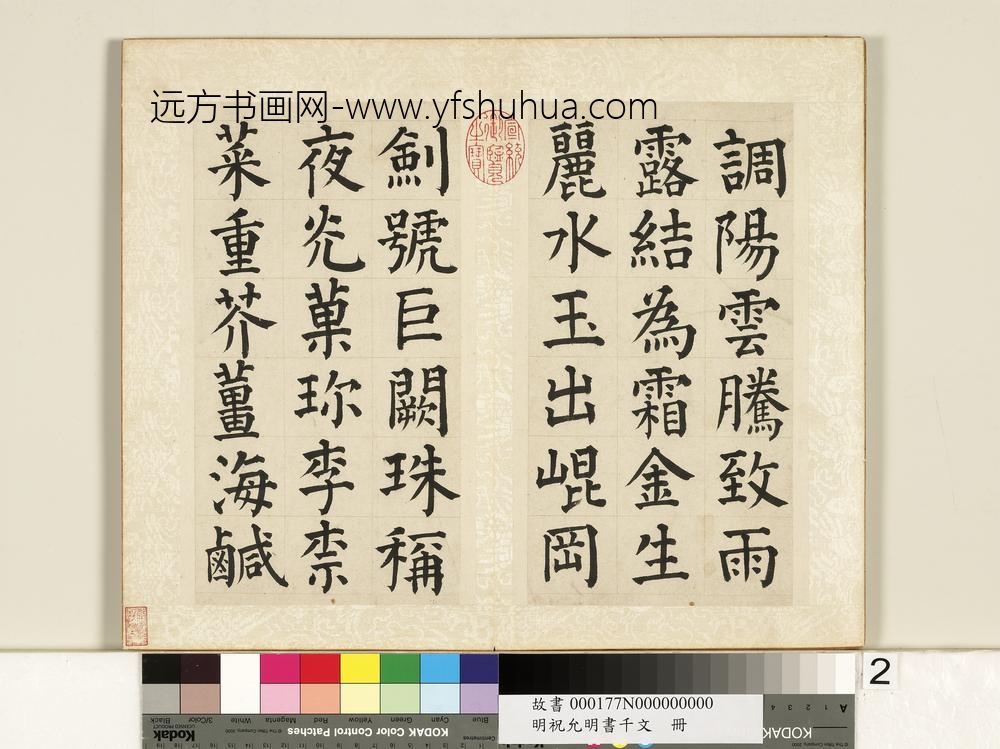 远方书画网-www.yfshuhua.com
調陽雲騰致雨
露結為霜金生
麗水玉出崐岡
劍號巨闕珠稱
夜光菓珎李柰
菜重芥薑海鹹
宣統御覽之寶
2
故書 000177N000000000
明祝允明書千文 冊
Blue
Cyan
Green
Yellow
Red
Magenta
White
3/Color
Black
KODAK Color Control Patches
Kodak
KODAK
A 1 2 3 4